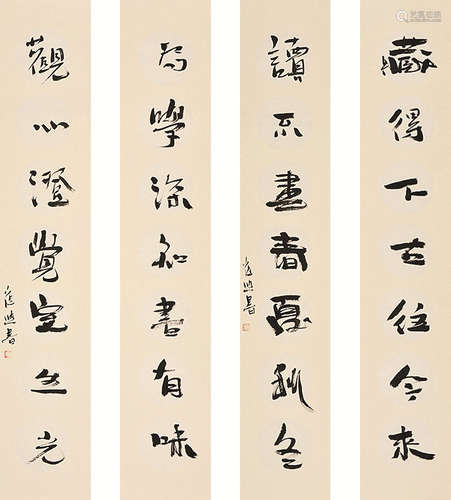 藏得下古往今來
讀不盡春夏秋冬
為學深知書有味
觀心澄覺室生光